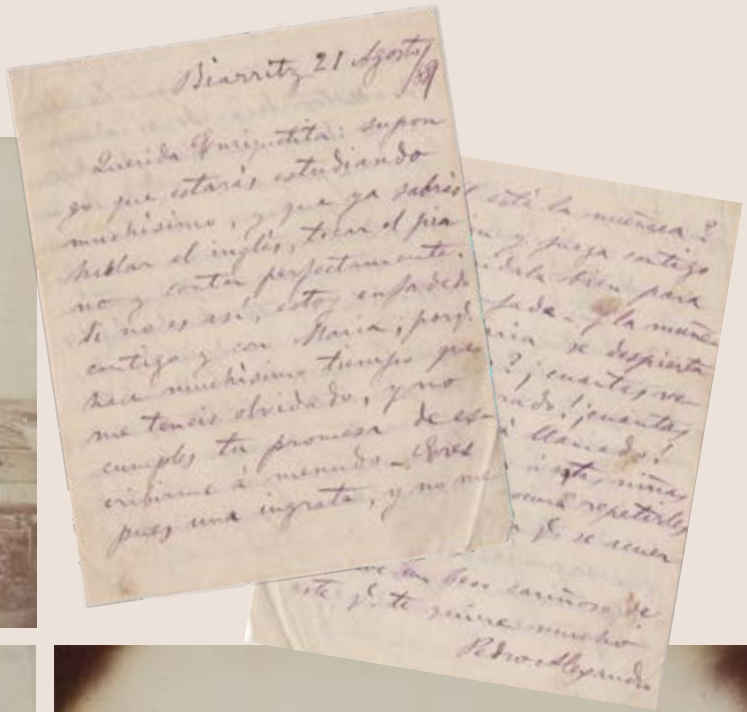 Biarritz 21 Agosto/89
Querida Enriquetita: supon
go que estarás estudiando
muchísimo, y que ya sabrás
hablar el inglés, tocar el pia
no y contar perfectamente.
Si no es así, estoy enfadado
contigo y con Maria; porq.
hace muchísimo tiempo que
me teneis olvidado, y no
cumples tu promesa de es-
cribirme á menudo. Eres
pues una ingrata, y no me
está la muñeca?
y juega contigo
bien para
la muñe
se despierta
? ¡cuantas ve
! ¡cuantas
llamado!
niñas
repetirles
q. se acuer
un beso cariñoso de
este q. te quiere mucho
Pedro Alejandro